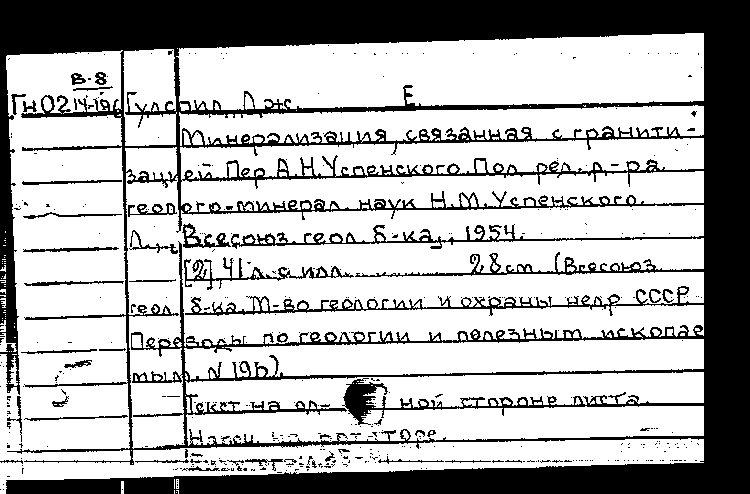 В-8
Гн02 14-196 Гудспид, Дж. Е.
Минерализация, связанная с гранити-
зацией. Пер. А.Н. Успенского. Под ред. д-ра
геолого-минерал. наук Н.М. Успенского.
Л., Всесоюз. геол. б-ка, 1954.
[2], 41 л. с илл. 28 см. (Всесоюз.
геол. б-ка. М-во геологии и охраны недр СССР
Переводы по геологии и полезным ископае
мым. N 196).
Текст на од- ной стороне листа.
Напеч. на ротаторе.